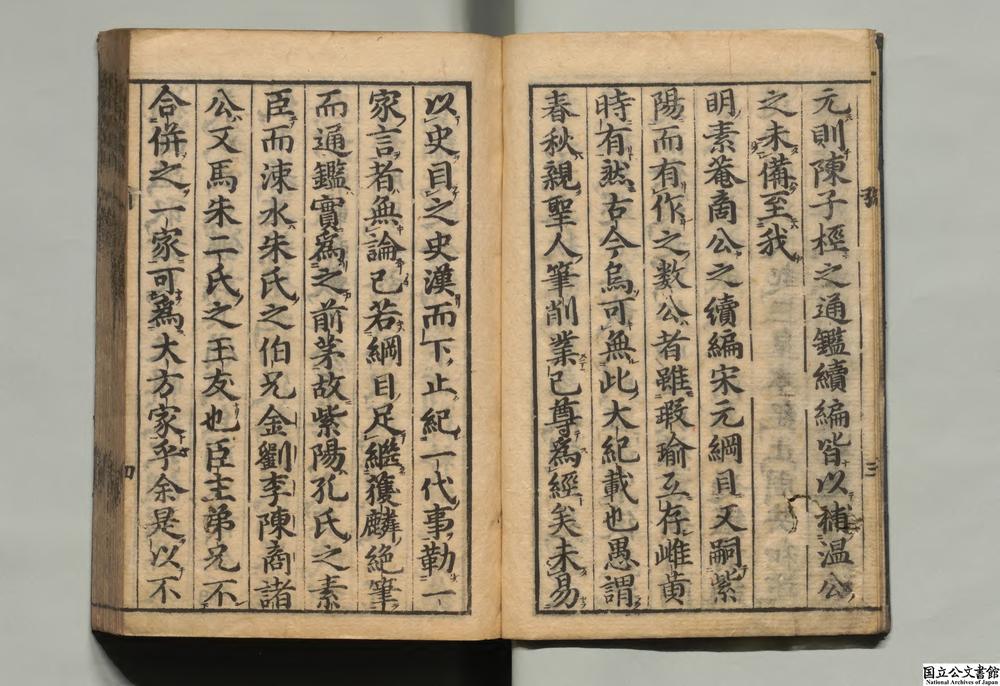 元則陳子桱之通鑑續編皆以補溫公
之未備至我
明素菴商公之續編宋元綱目又嗣紫
陽而有作之數公者雖瑕瑜互存雌黄
時有然古今烏可無此大紀載也愚謂
春秋親聖人筆削業已尊爲經矣未易
以史目之史漢而下止紀一代事勒一
家言者無論已若綱目足繼獲麟絶筆
而通鑑實爲之前茅故紫陽孔氏之素
臣而涑水朱氏之伯兄金劉李陳商諸
公又馬朱二氏之王友也臣主弟兄不
合併之一家可爲大方家乎余是以不
三
国立公文書館
National Archives of Japan